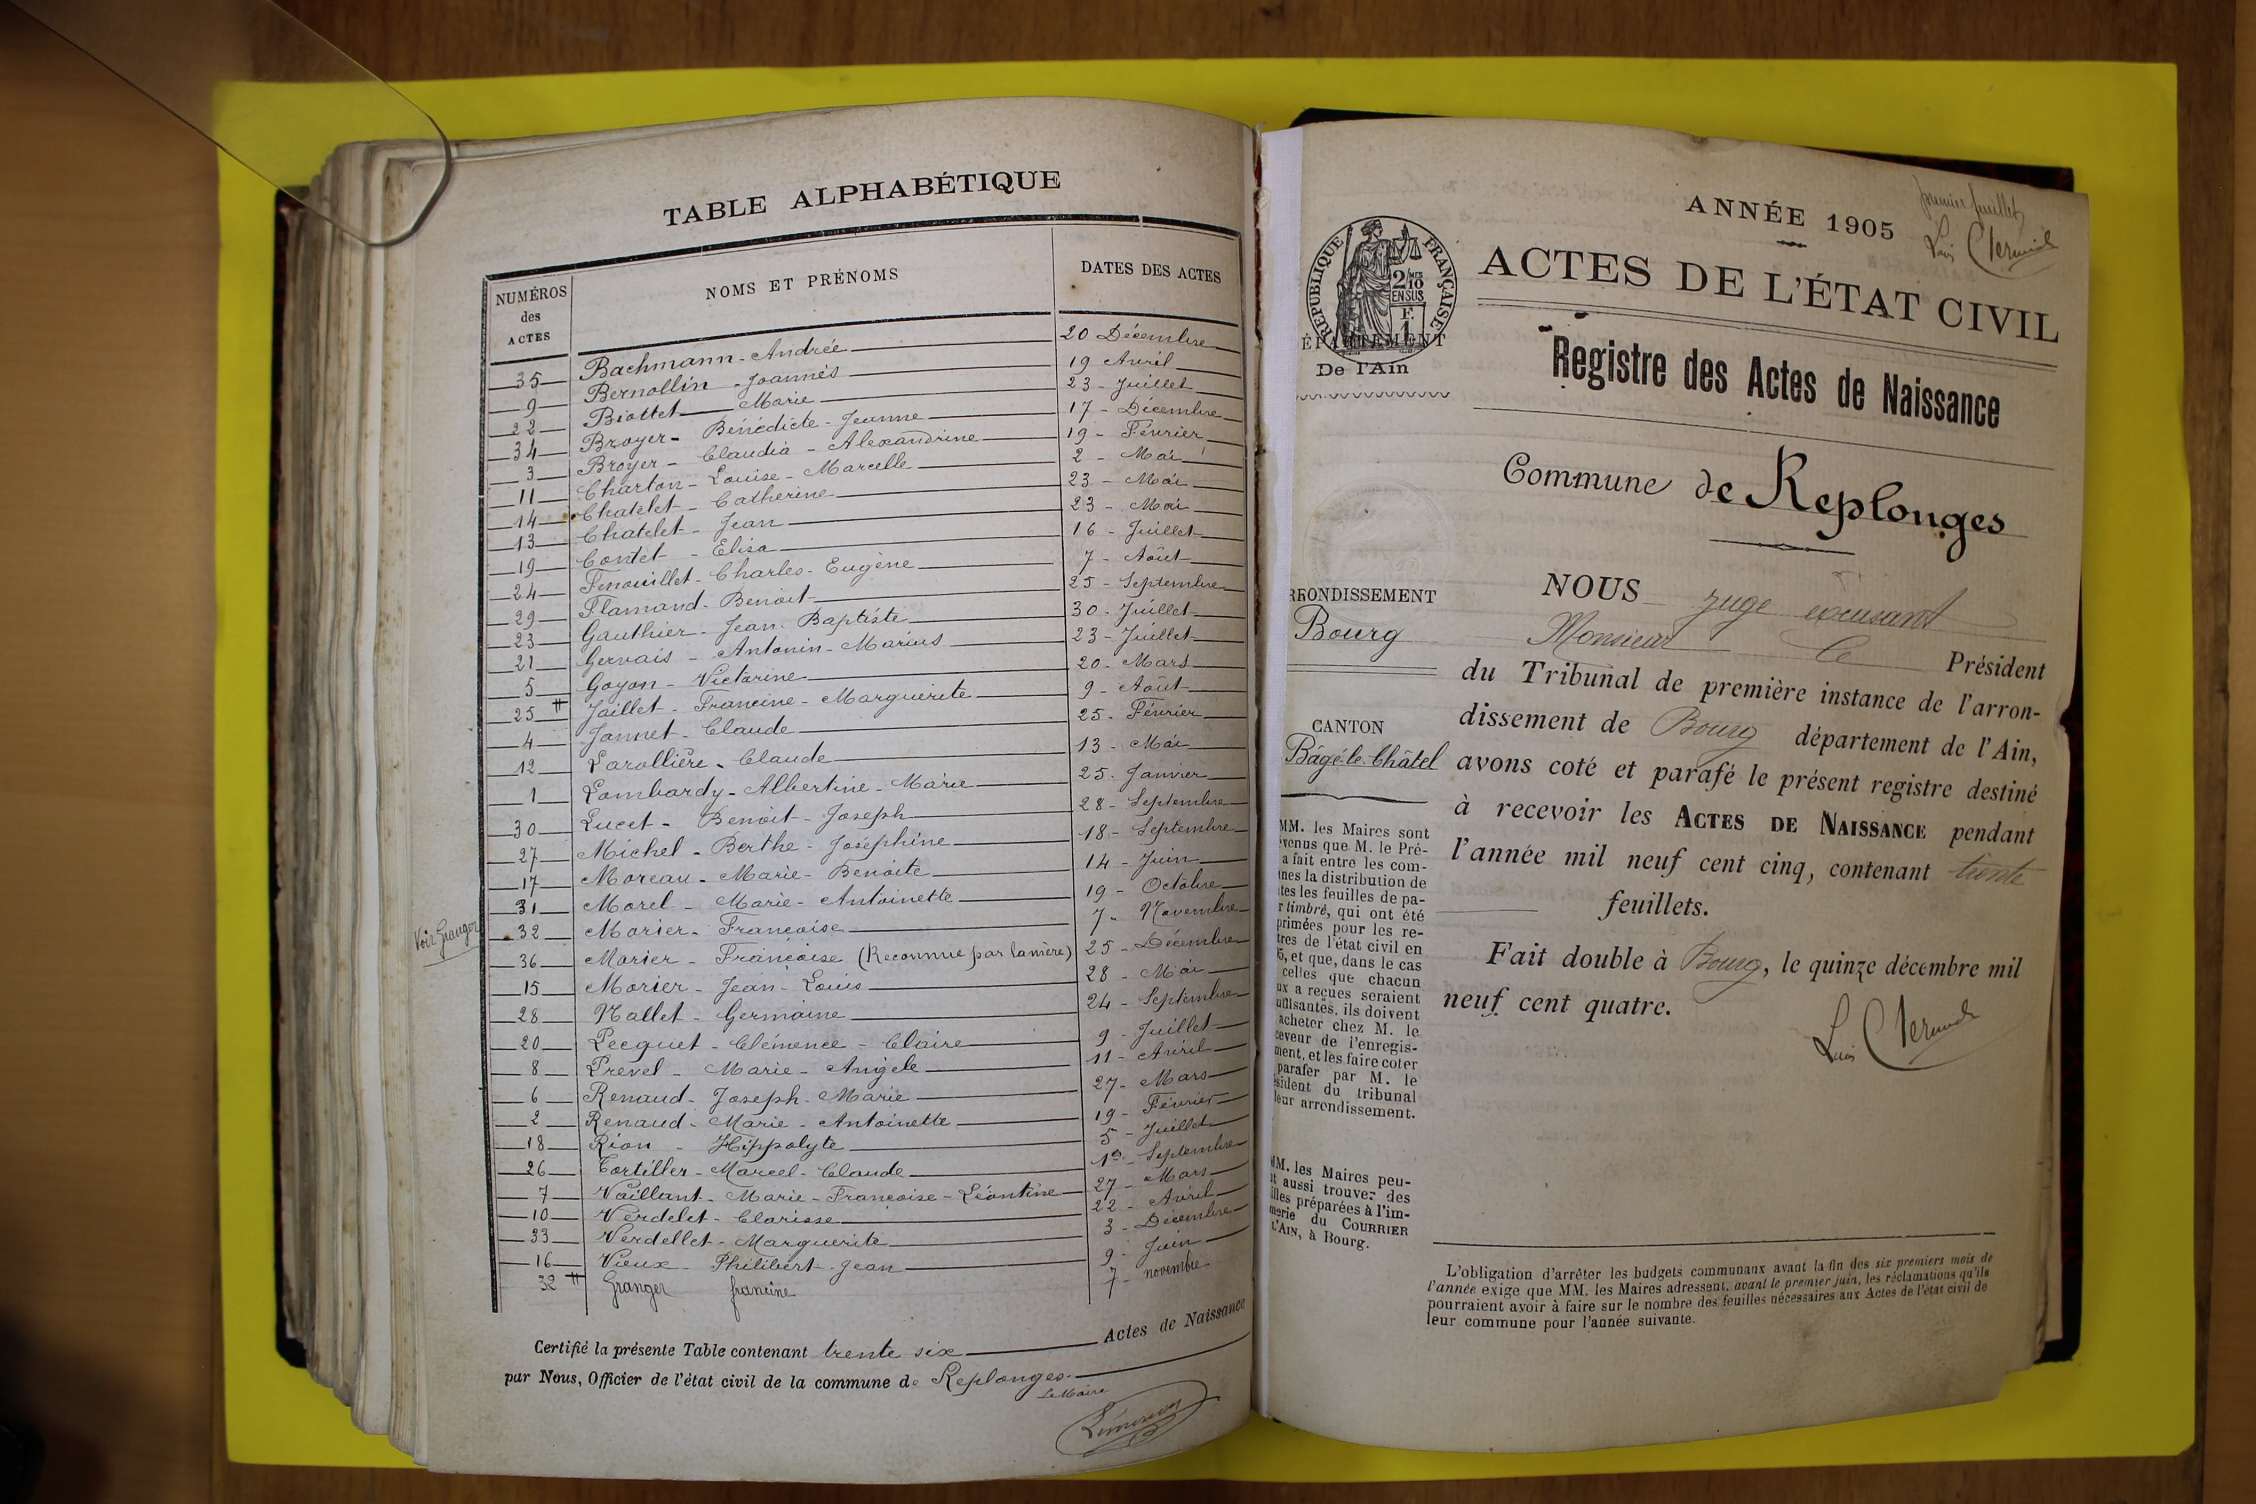 TABLE ALPHABÉTIQUE
NUMÉROS des ACTES NOMS ET PRÉNOMS DATES DES ACTES
35 Bachmann - Andrée 20 Décembre
9 Bernollin - Joannès 19 Avril
22 Biottet Marie 23 - Juillet
34 Broyer - Bénédicte - Jeanne 17 - Décembre
3 Broyer - Claudia - Alexandrine 19 - Février
11 Charton - Louise - Marcelle 2 - Mai
14 Chatelet - Catherine 23 - Mai
13 Chatelet - Jean 23 - Mai
19 Contet - Elisa 16 - Juillet
24 Fenouillet - Charles - Eugène 7 - Août
29 Flamand - Benoit 25 - Septembre
23 Gauthier - Jean - Baptiste 30 - Juillet
21 Gervais - Antonin - Marius 23 - Juillet
5 Goyon - Victorine 20 - Mars
25 # Jaillet - Francine - Marguerite 9 - Août
4 Jannet - Claude 25 - Février
12 Larollière - Claude 13 - Mai
1 Lombardy - Albertine - Marie 25 - Janvier
30 Lucet - Benoit - Joseph 28 - Septembre
27 Michel - Berthe - Joséphine 18 - Septembre
17 Moreau - Marie - Benoite 14 - Juin
31 Morel - Marie - Antoinette 19 - Octobre
Voir Granger 32 Morier - Françoise 7 - Novembre
36 Morier - Françoise (Reconnue par la mère) 25 - Décembre
15 Morier - Jean - Louis 28 - Mai
28 Nallet - Germaine 24 - Septembre
20 Pecquet - Clémence - Claire 9 - Juillet
8 Prevel - Marie - Angèle 11 - Avril
6 Renaud - Joseph - Marie 27 - Mars
2 Renaud - Marie - Antoinette 19 - Février
18 Rion - Hippolyte 5 - Juillet
26 Tortiller - Marcel - Claude 1er - Septembre
7 Vaillant - Marie - Françoise - Léontine 27 - Mars
10 Verdelet - Clarisse 22 - Avril
33 Verdellet - Marguerite 3 - Décembre
16 Vieux - Philibert - Jean 9 - Juin
32 # Granger francine 7 - novembre
Certifié la présente Table contenant trente six Actes de Naissance
par Nous, Officier de l'état civil de la commune de Replonges.
Le Maire
premier feuillet
ANNÉE 1905
ACTES DE L'ÉTAT CIVIL
RÉPUBLIQUE FRANÇAISE
2/10 EN SUS
1 F.
ÉPARTEMENT
De l'Ain
Registre des Actes de Naissance
Commune de Replonges
RRONDISSEMENT
Bourg
CANTON
Bâgé-le-Châtel
MM. les Maires sont
évenus que M. le Pré-
a fait entre les com-
nes la distribution de
tes les feuilles de pa-
r timbré, qui ont été
primées pour les re-
tres de l'état civil en
5, et que, dans le cas
celles que chacun
ux a reçues seraient
uffisantes, ils doivent
acheter chez M. le
ceveur de l'enregis-
ment, et les faire coter
parafer par M. le
ésident du tribunal
leur arrondissement.
MM. les Maires peu-
nt aussi trouver des
illes préparées à l'im-
merie du COURRIER
L'AIN, à Bourg.
NOUS juge excusant
Monsieur Le Président
du Tribunal de première instance de l'arron-
dissement de Bourg département de l'Ain,
avons coté et parafé le présent registre destiné
à recevoir les ACTES DE NAISSANCE pendant
l'année mil neuf cent cinq, contenant trente
feuillets.
Fait double à Bourg, le quinze décembre mil
neuf cent quatre.
L'obligation d'arrêter les budgets communaux avant la fin des six premiers mois de
l'année exige que MM. les Maires adressent, avant le premier juin, les réclamations qu'ils
pourraient avoir à faire sur le nombre des feuilles nécessaires aux Actes de l'état civil de
leur commune pour l'année suivante.